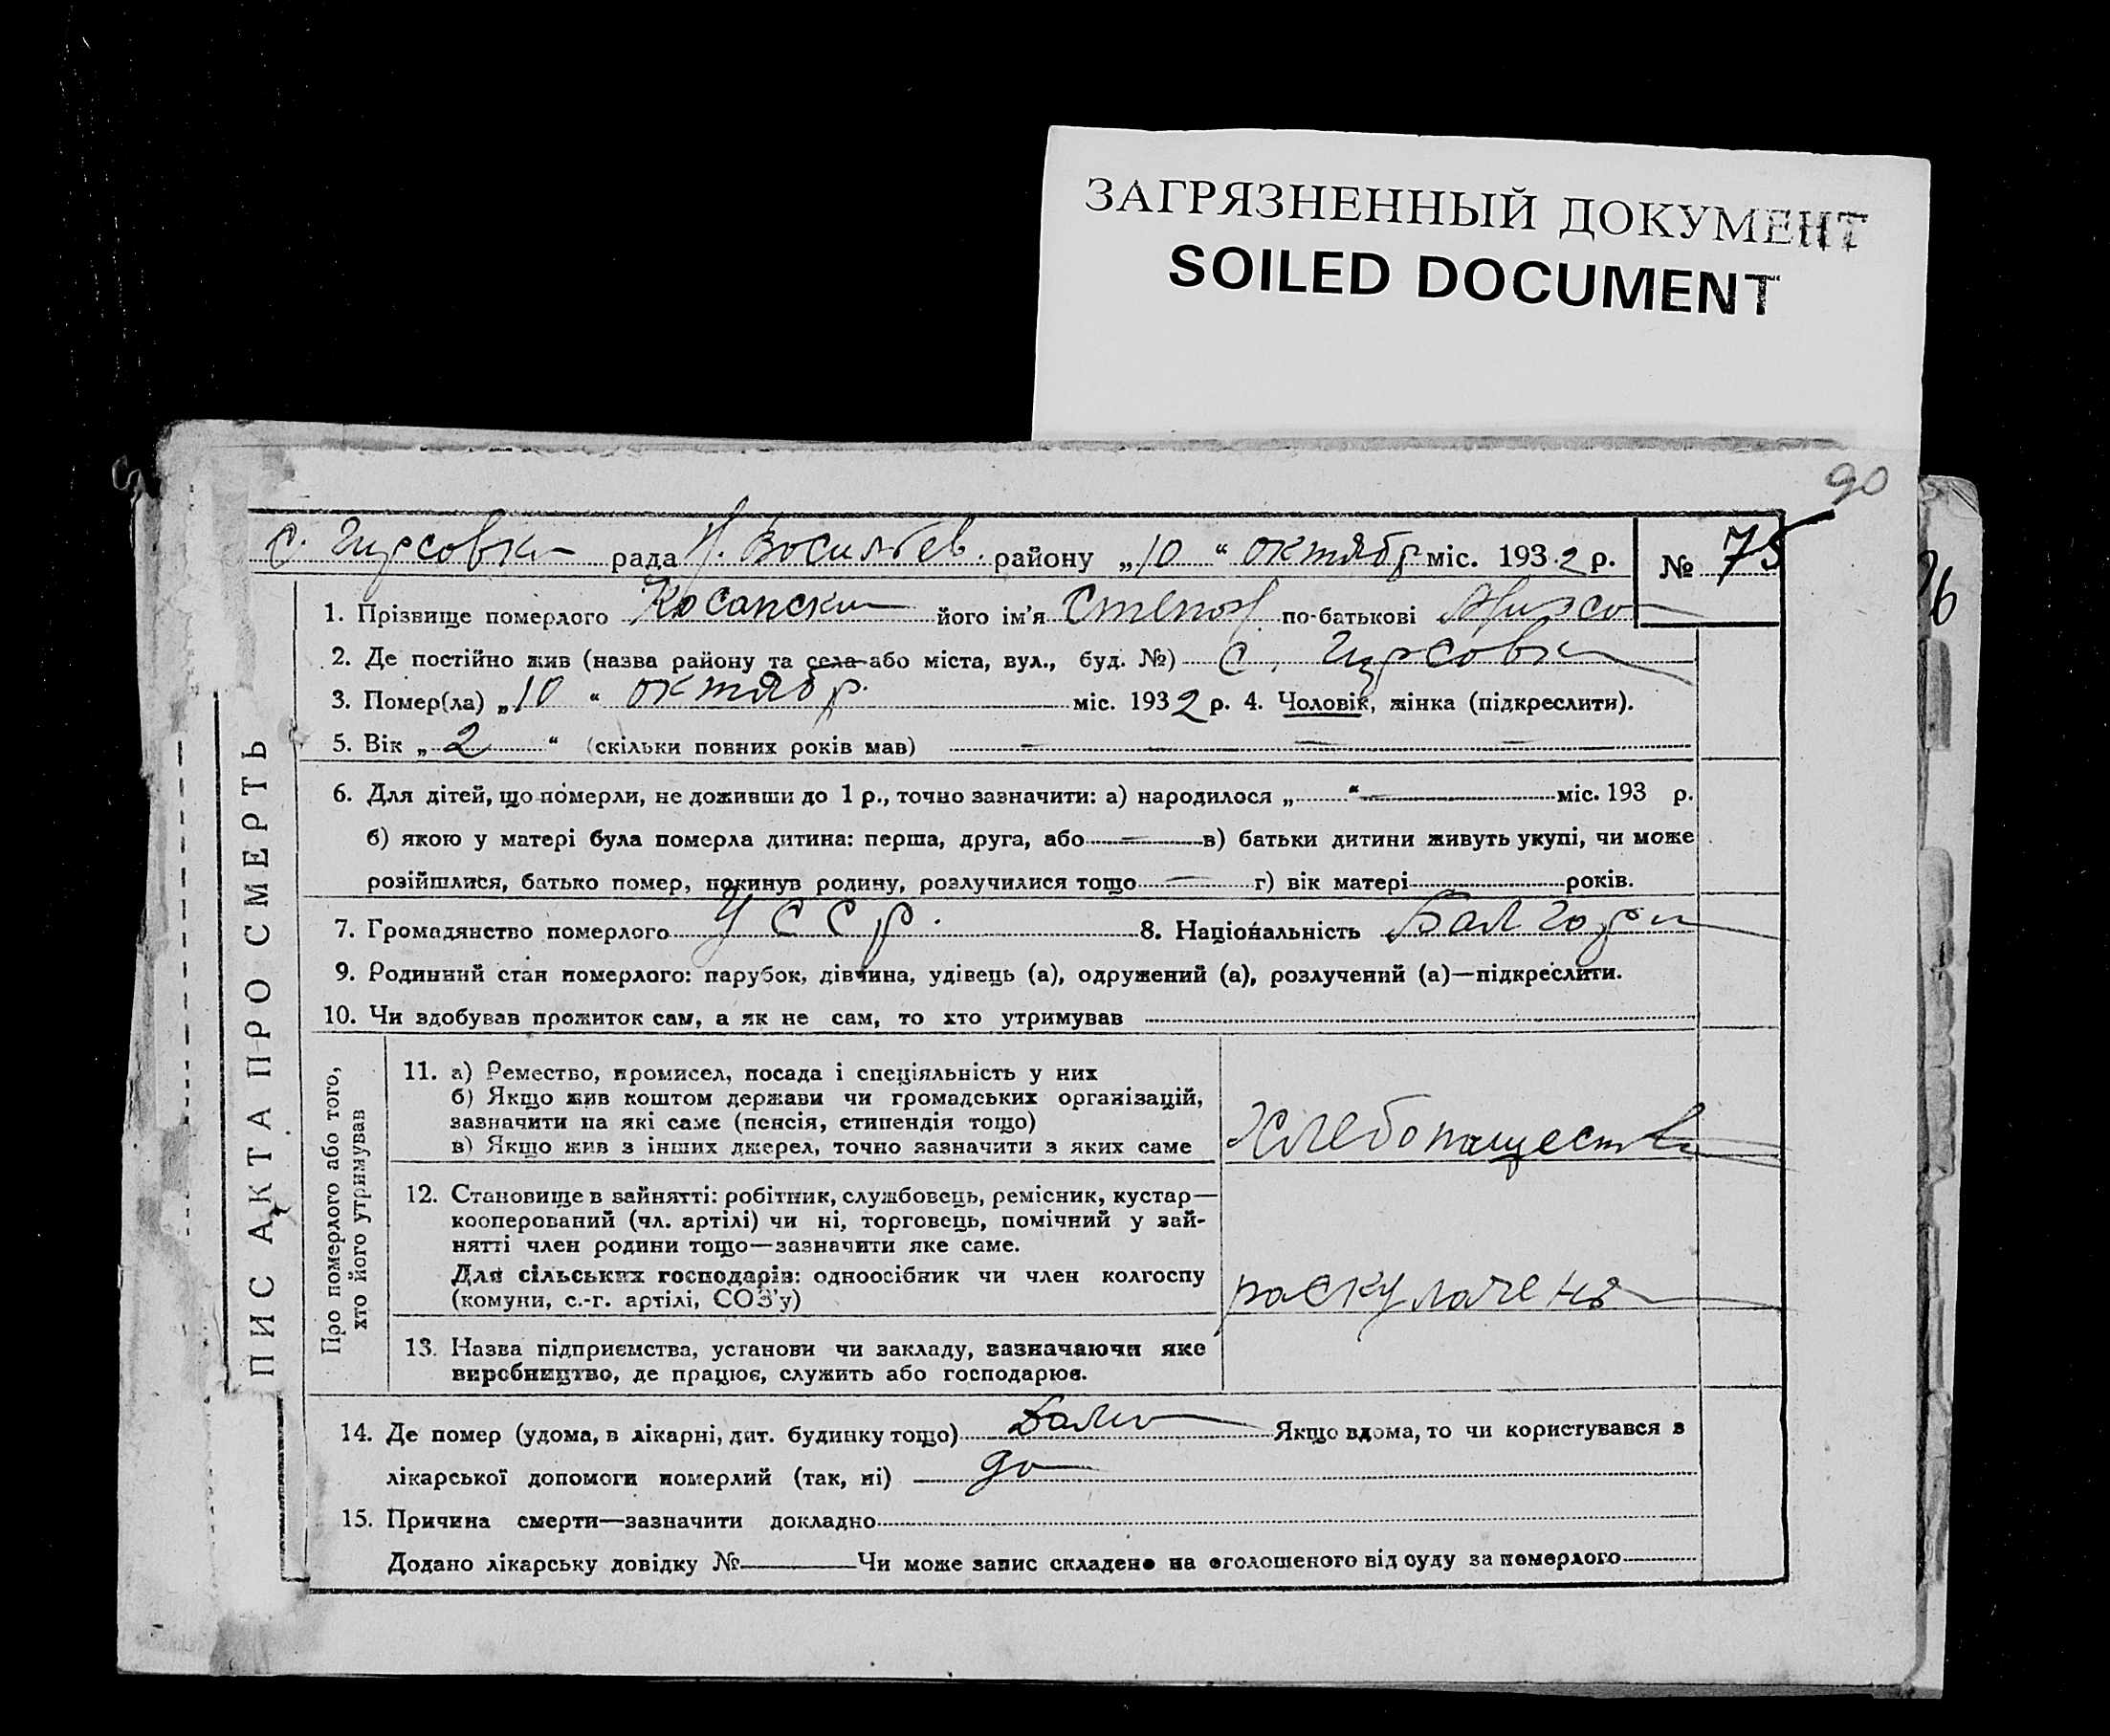 ЗАГРЯЗНЕННЫЙ ДОКУМЕНТ
SOILED DOCUMENT
90
с. Гирсовка рада Н. Васильев. району „10“ октябр міс. 1932 р. № 75
1. Прізвище померлого його ім'я Степан по-батькові
2. Де постійно жив (назва району та села або міста, вул., буд. №) с. Гирсовка
3. Помер(ла) „10“ октябр. міс. 1932 р. 4. Чоловік, жінка (підкреслити).
5. Вік „2“ (скільки повних років мав)
6. Для дітей, що померли, не доживши до 1 р., точно зазначити: а) народилося „ “ міс. 193 р.
б) якою у матері була померла дитина: перша, друга, або в) батьки дитини живуть укупі, чи може
розійшлися, батько помер, покинув родину, розлучилися тощо г) вік матері років.
7. Громадянство померлого УССР. 8. Національність
9. Родинний стан померлого: парубок, дівчина, удівець (а), одружений (а), розлучений (а)—підкреслити.
10. Чи здобував прожиток сам, а як не сам, то хто утримував
ПИС АКТА ПРО СМЕРТЬ
Про померлого або того,
хто його утримував
11. а) Ремество, промисел, посада і спеціяльність у них
б) Якщо жив коштом держави чи громадських організацій,
зазначити на які саме (пенсія, стипендія тощо)
в) Якщо жив з інших джерел, точно зазначити з яких саме
12. Становище в зайнятті: робітник, службовець, ремісник, кустар—
кооперований (чл. артілі) чи ні, торговець, помічний у зай-
нятті член родини тощо—зазначити яке саме.
Для сільських господарів: одноосібник чи член колгоспу
(комуни, с.-г. артілі, СОЗ'у)
13. Назва підприємства, установи чи закладу, зазначаючи яке
виробництво, де працює, служить або господарює.
14. Де помер (удома, в лікарні, дит. будинку тощо) Якщо вдома, то чи користувався з
лікарської допомоги померлий (так, ні) да
15. Причина смерти—зазначити докладно
Додано лікарську довідку № Чи може запис складено на оголошеного від суду за померлого